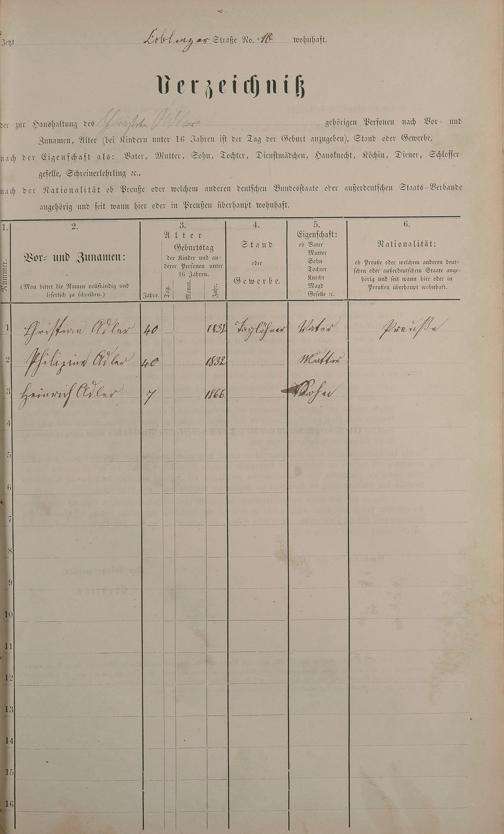 Jetzt Coblenzer Straße No. 10 wohnhaft.
Verzeichniß
der zur Haushaltung des Christian Adler gehörigen Personen nach Vor- und
Zunamen, Alter (bei Kindern unter 16 Jahren ist der Tag der Geburt anzugeben), Stand oder Gewerbe,
nach der Eigenschaft als: Vater, Mutter, Sohn, Tochter, Dienstmädchen, Hausknecht, Köchin, Diener, Schlosser
geselle, Schreinerlehrling ec.,
nach der Nationalität ob Preuße oder welchem anderen deutschen Bundesstaate oder außerdeutschen Staats-Verbande
angehörig und seit wann hier oder in Preußen überhaupt wohnhaft.
1.
Nummer.
2.
Vor- und Zunamen:
(Man bittet die Namen vollständig und
leserlich zu schreiben.)
3.
Alter
Geburtstag
der Kinder und an-
derer Personen unter
16 Jahren.
Jahre.
Tag.
Monat.
Jahr.
4.
Stand
oder
Gewerbe.
5.
Eigenschaft:
ob Vater
Mutter
Sohn
Tochter
Knecht
Magd
Geselle ec.
6.
Nationalität:
ob Preuße oder welchem anderen deut-
schen oder außerdeutschen Staate ange-
hörig und seit wann hier oder in
Preußen überhaupt wohnhaft.
1 Christian Adler 40 1832 Taglöhner Vater Preuße
2 Philipine Adler 40 1832 Mutter
3 Heinrich Adler 7 1866 Sohn
4
5
6
7
8
9
10
11
12
13
14
15
16